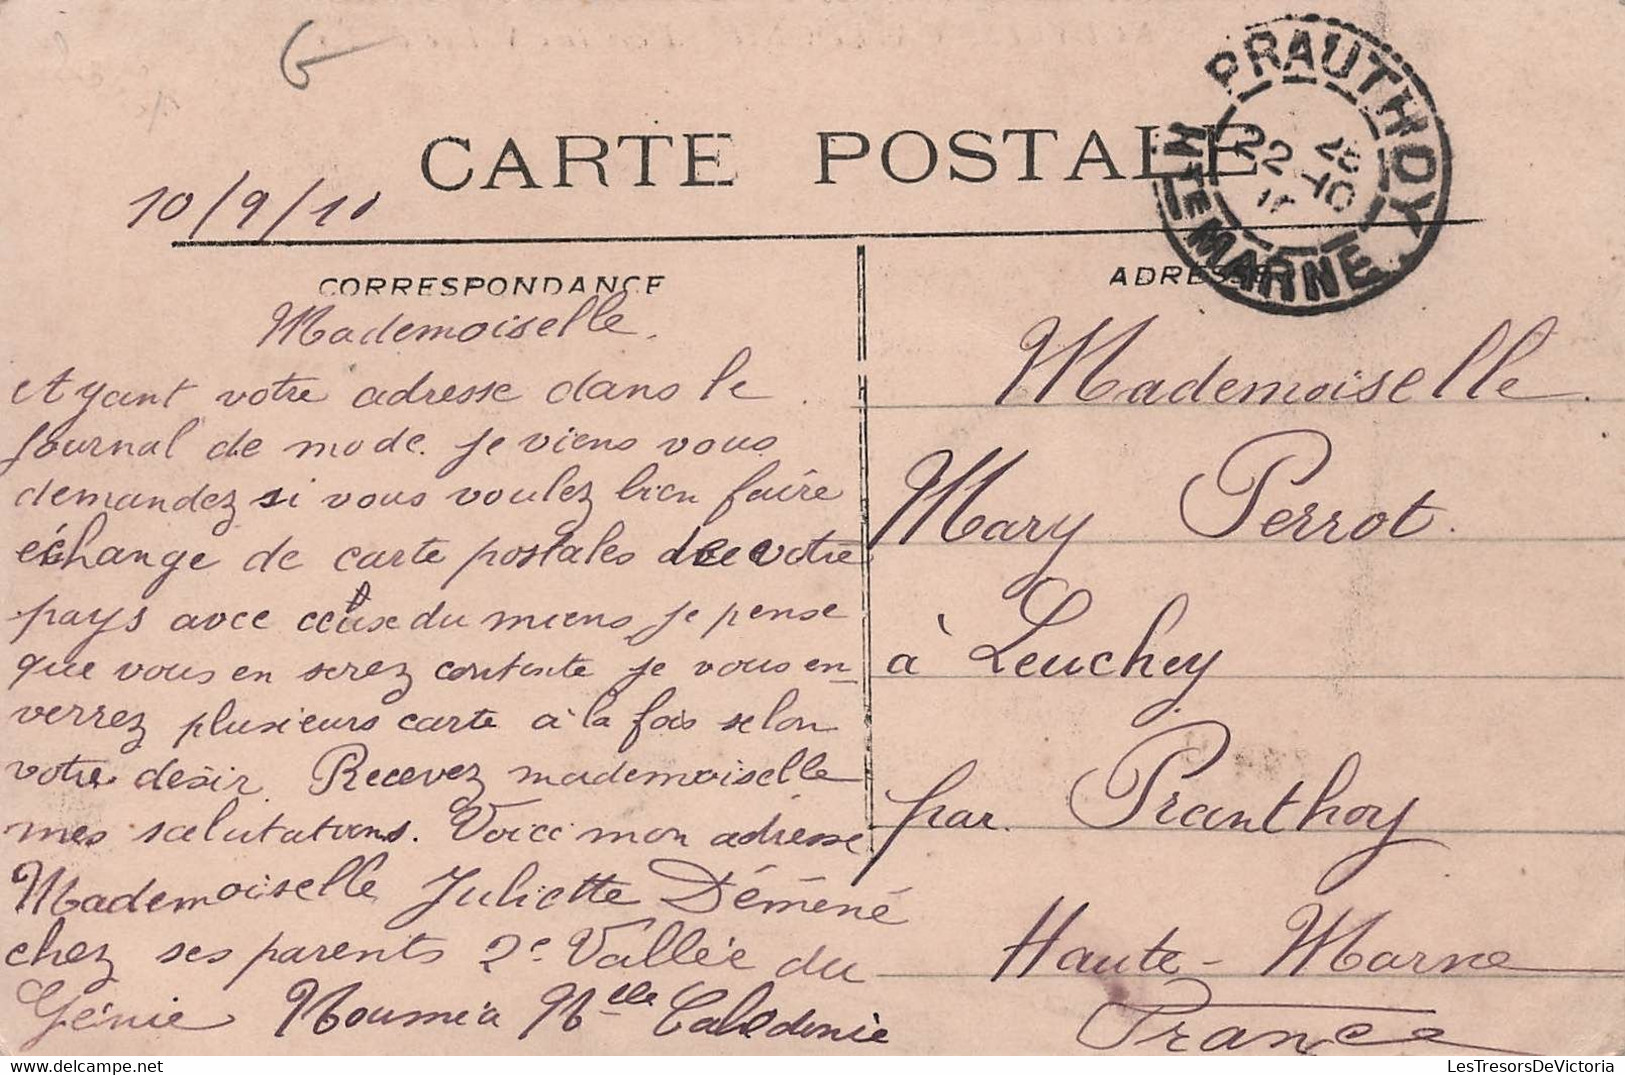 CARTE POSTALE
PRAUTHOY
22 25
10
Hte MARNE
10/9/10
CORRESPONDANCE
ADRESSE
Mademoiselle.
Ayant votre adresse dans le
journal de mode. je viens vous
demandez si vous voulez bien faire
échange de carte postales de votre
pays avec ceux du miens je pense
que vous en serez contente je vous en
verrez plusieurs carte à la fois selon
votre désir. Recevez mademoiselle
mes salutations. Voici mon adresse
Mademoiselle Juliette Déméné
chez ses parents 2e Vallée du
Génie Nouméa Nelle Calédonie
Mademoiselle.
Mary Perrot.
à Leuchey
par. Pranthoy
Haute-Marne
France
LesTresorsDeVictoria